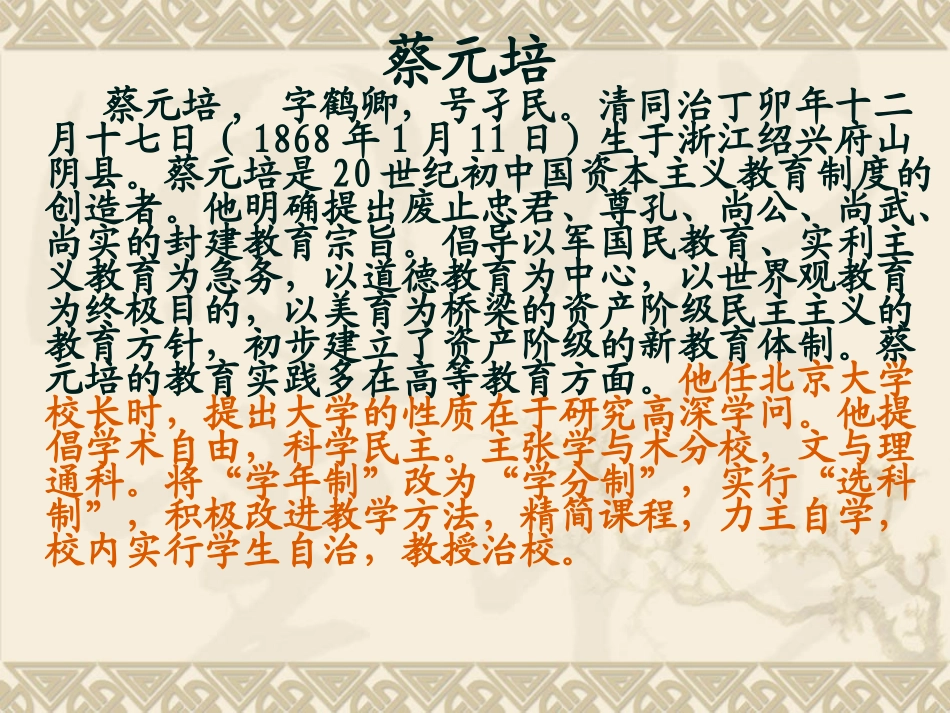 蔡元培
蔡元培， 字鹤卿，号孑民。清同治丁卯年十二
月十七日（ 1868 年 1 月 11 日）生于浙江绍兴府山
阴县。蔡元培是 20 世纪初中国资本主义教育制度的
创造者。他明确提出废止忠君、尊孔、尚公、尚武、
尚实的封建教育宗旨。倡导以军国民教育、实利主
义教育为急务，以道德教育为中心，以世界观教育
为终极目的，以美育为桥梁的资产阶级民主主义的
教育方针，初步建立了资产阶级的新教育体制。蔡
元培的教育实践多在高等教育方面。他任北京大学
校长时，提出大学的性质在于研究高深学问。他提
倡学术自由，科学民主。主张学与术分校，文与理
通科。将“学年制”改为“学分制”，实行“选科
制”，积极改进教学方法，精简课程，力主自学，
校内实行学生自治，教授治校。